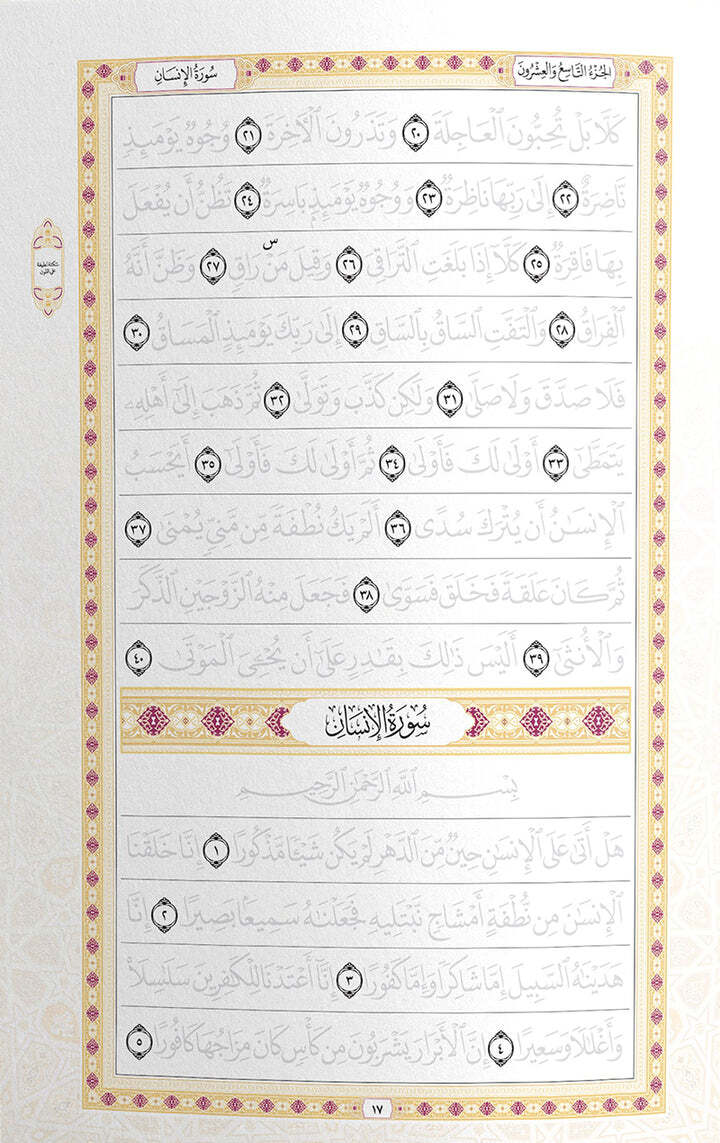 الجزء التاسع والعشرون
سورة الإنسان
كَلَّا بَلْ تُحِبُّونَ ٱلْعَاجِلَةَ ٢٠ وَتَذَرُونَ ٱلْأَخِرَةَ ٢١ وُجُوهٌ يَوْمَئِذٍ
نَّاضِرَةٌ ٢٢ إِلَىٰ رَبِّهَا نَاظِرَةٌ ٢٣ وَوُجُوهٌ يَوْمَئِذٍۭ بَاسِرَةٌ ٢٤ تَظُنُّ أَن يُفْعَلَ
بِهَا فَاقِرَةٌ ٢٥ كَلَّا إِذَا بَلَغَتِ ٱلتَّرَاقِيَ ٢٦ وَقِيلَ مَنْۜ رَاقٍ ٢٧ وَظَنَّ أَنَّهُ
ٱلْفِرَاقُ ٢٨ وَٱلْتَفَّتِ ٱلسَّاقُ بِٱلسَّاقِ ٢٩ إِلَىٰ رَبِّكَ يَوْمَئِذٍ ٱلْمَسَاقُ ٣٠
فَلَا صَدَّقَ وَلَا صَلَّىٰ ٣١ وَلَٰكِن كَذَّبَ وَتَوَلَّىٰ ٣٢ ثُمَّ ذَهَبَ إِلَىٰٓ أَهْلِهِۦ
يَتَمَطَّىٰٓ ٣٣ أَوْلَىٰ لَكَ فَأَوْلَىٰ ٣٤ ثُمَّ أَوْلَىٰ لَكَ فَأَوْلَىٰٓ ٣٥ أَيَحْسَبُ
ٱلْإِنسَٰنُ أَن يُتْرَكَ سُدًى ٣٦ أَلَمْ يَكُ نُطْفَةً مِّن مَّنِيٍّ يُمْنَىٰ ٣٧
ثُمَّ كَانَ عَلَقَةً فَخَلَقَ فَسَوَّىٰ ٣٨ فَجَعَلَ مِنْهُ ٱلزَّوْجَيْنِ ٱلذَّكَرَ
وَٱلْأُنثَىٰٓ ٣٩ أَلَيْسَ ذَٰلِكَ بِقَٰدِرٍ عَلَىٰٓ أَن يُحْۦِيَ ٱلْمَوْتَىٰ ٤٠
سكتة لطيفة
على النون
سورة الإنسان
بِسْمِ ٱللَّهِ ٱلرَّحْمَٰنِ ٱلرَّحِيمِ
هَلْ أَتَىٰ عَلَى ٱلْإِنسَٰنِ حِينٌ مِّنَ ٱلدَّهْرِ لَمْ يَكُن شَيْـًٔا مَّذْكُورًا ١ إِنَّا خَلَقْنَا
ٱلْإِنسَٰنَ مِن نُّطْفَةٍ أَمْشَاجٍ نَّبْتَلِيهِ فَجَعَلْنَٰهُ سَمِيعًۢا بَصِيرًا ٢ إِنَّا
هَدَيْنَٰهُ ٱلسَّبِيلَ إِمَّا شَاكِرًا وَإِمَّا كَفُورًا ٣ إِنَّآ أَعْتَدْنَا لِلْكَٰفِرِينَ سَلَٰسِلَا۟
وَأَغْلَٰلًا وَسَعِيرًا ٤ إِنَّ ٱلْأَبْرَارَ يَشْرَبُونَ مِن كَأْسٍ كَانَ مِزَاجُهَا كَافُورًا ٥
١٧